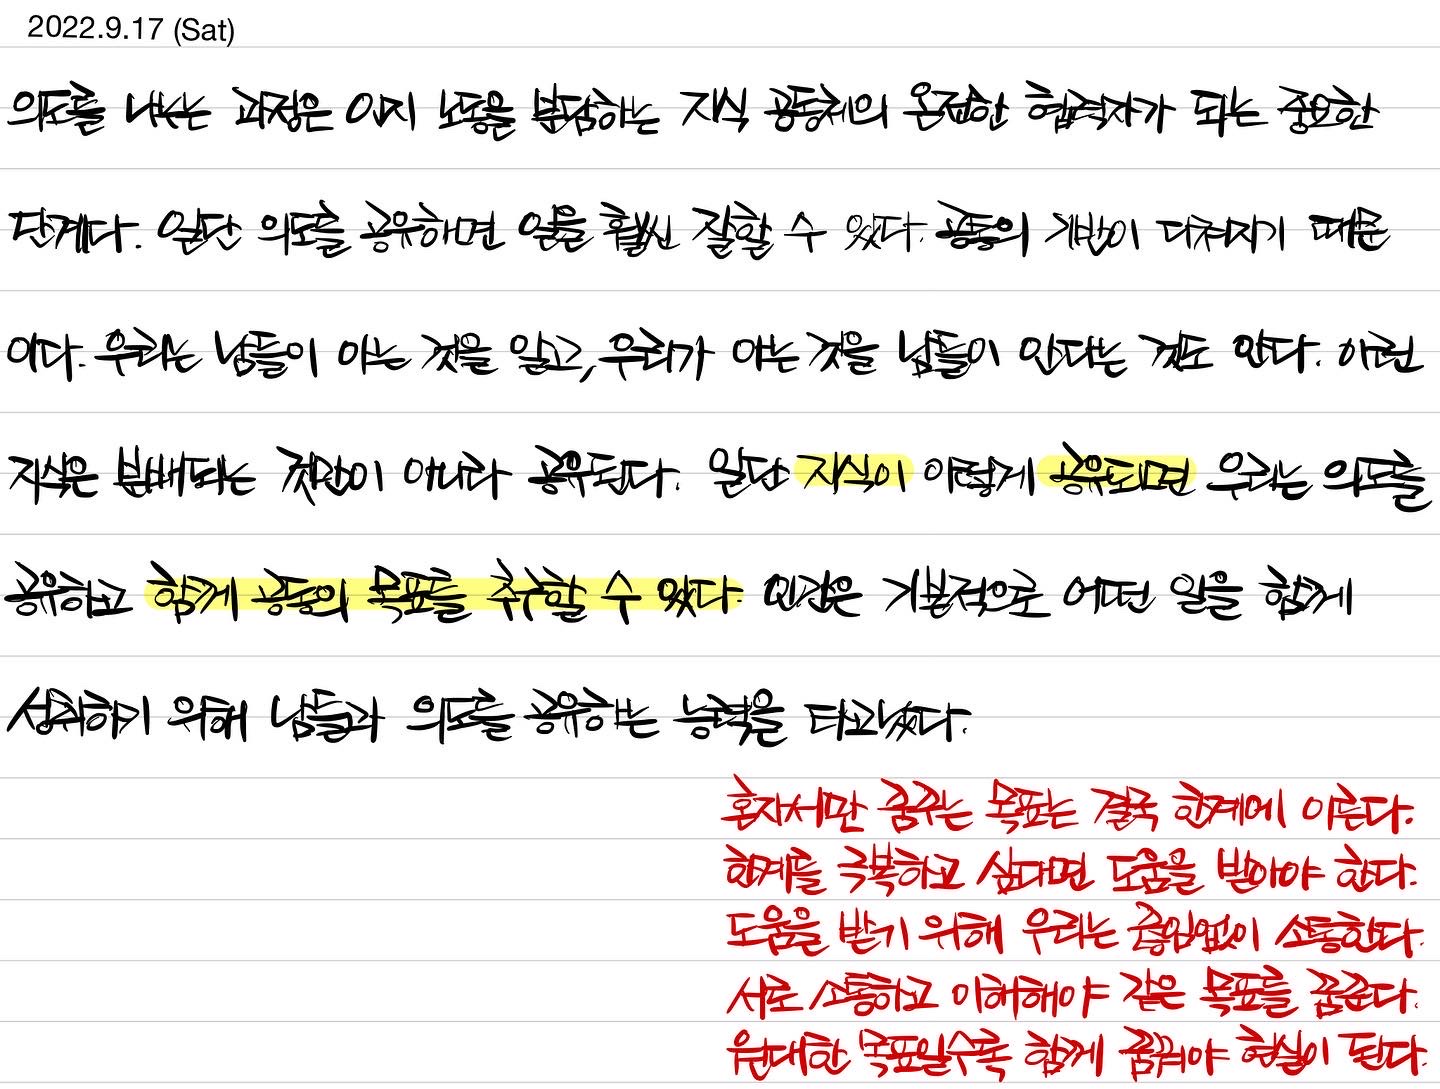 2022.9.17 (Sat)
의도를 나누는 과정은 인지 노동을 분담하는 지식 공동체의 온전한 협력자가 되는 중요한
단계다. 일단 의도를 공유하면 일을 훨씬 잘할 수 있다. 공동의 기반이 다져지기 때문
이다. 우리는 남들이 아는 것을 알고, 우리가 아는 것을 남들이 안다는 것도 안다. 이런
지식은 분배되는 것만이 아니라 공유된다. 일단 지식이 이렇게 공유되면 우리는 의도를
공유하고 함께 공동의 목표를 추구할 수 있다. 인간은 기본적으로 어떤 일을 함께
성취하기 위해 남들과 의도를 공유하는 능력을 타고났다.
혼자서만 꿈꾸는 목표는 결국 한계에 이른다.
한계를 극복하고 싶다면 도움을 받아야 한다.
도움을 받기 위해 우리는 끊임없이 소통한다.
서로 소통하고 이해해야 같은 목표를 꿈꾼다.
원대한 목표일수록 함께 꿈꿔야 현실이 된다.